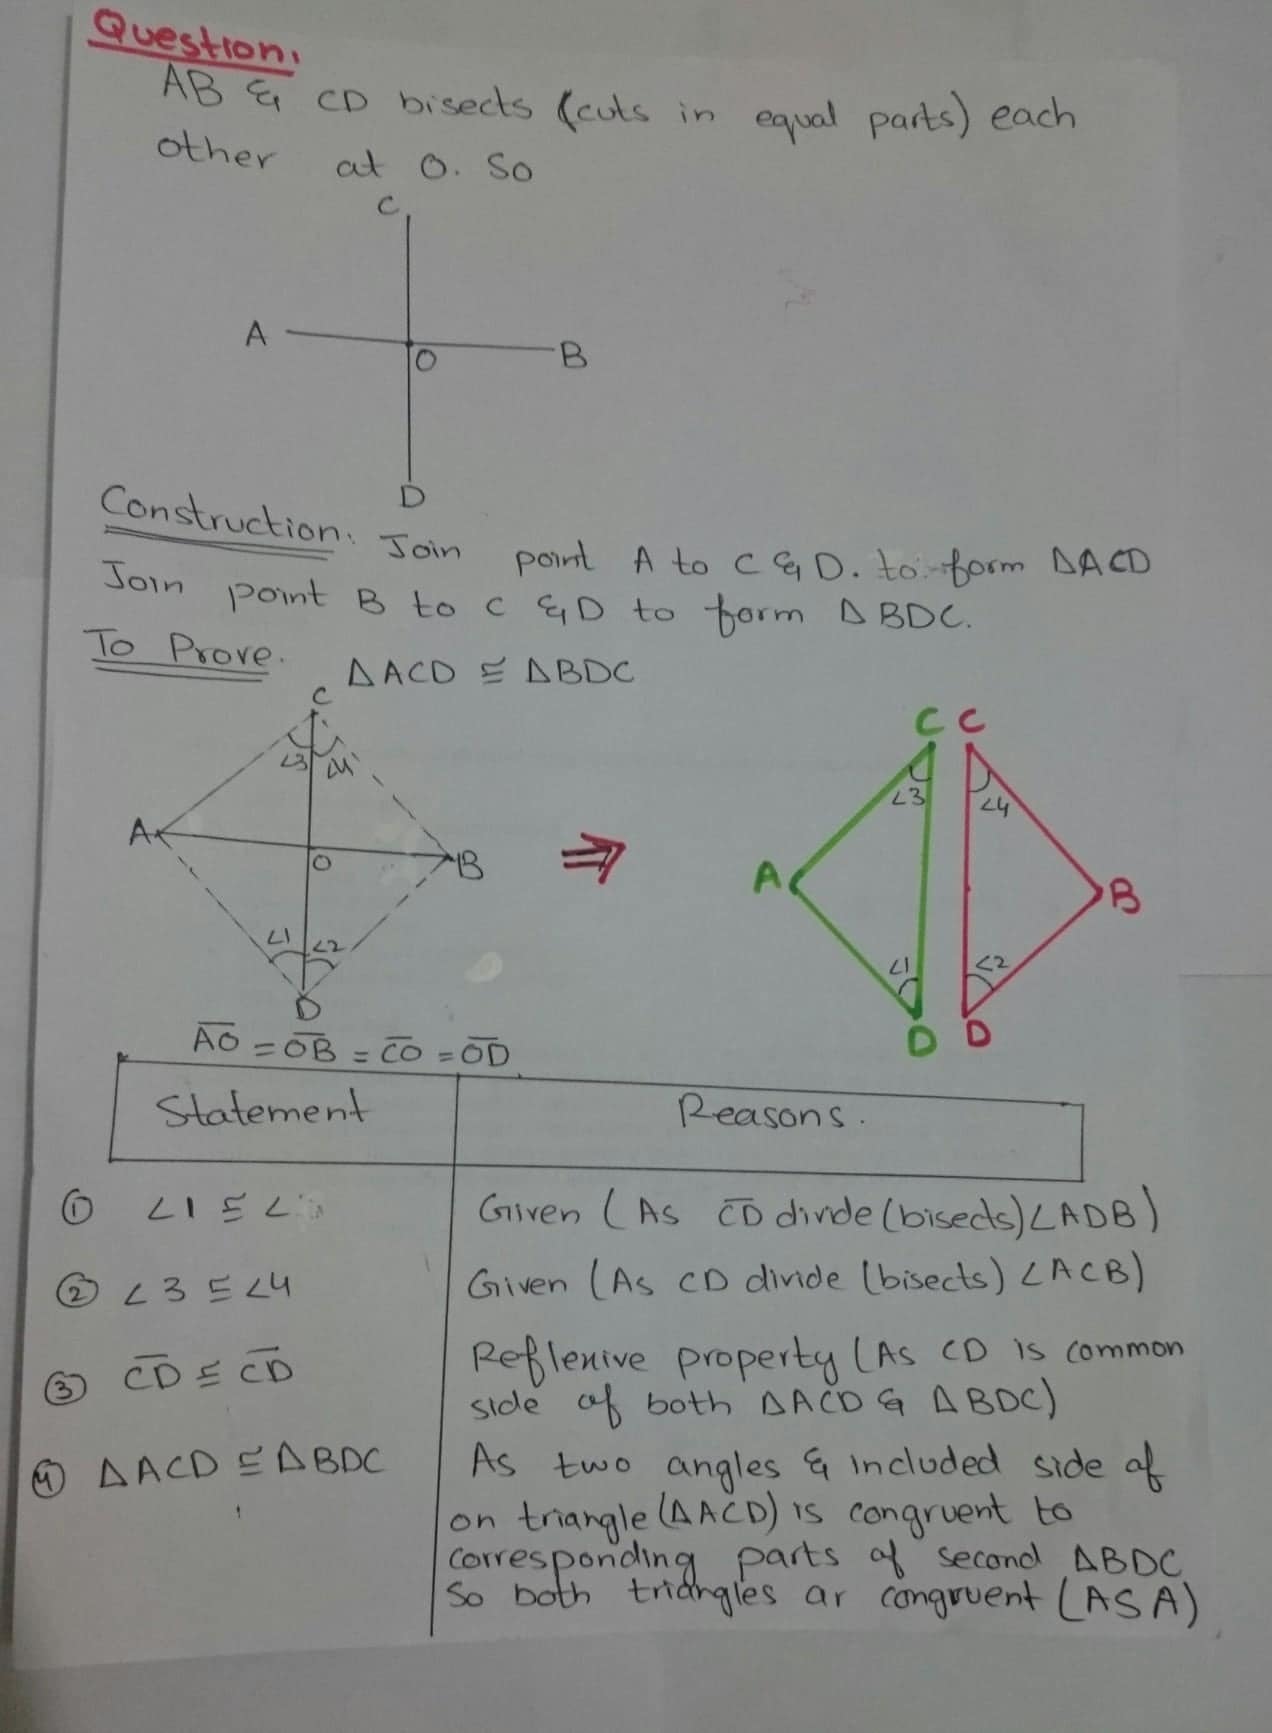 Question.
AB & CD bisects (cuts in equal parts) each
other at O. So
C
A
O
B
D
Construction. Join point A to C & D. to form ΔACD
Join point B to C & D to form Δ BDC.
To Prove.
ΔACD ≅ ΔBDC
C
∠3 ∠4
A
O
B
∠1 ∠2
D
⇒
C C
∠3 ∠4
A
B
∠1 ∠2
D D
AO = OB = CO = OD
Statement Reasons.
① ∠1 ≅ ∠ Given (As CD divide (bisects) ∠ADB)
② ∠3 ≅ ∠4 Given (As CD divide (bisects) ∠ACB)
③ CD ≅ CD Reflexive property (As CD is common
side of both ΔACD & ΔBDC)
④ ΔACD ≅ ΔBDC As two angles & included side of
on triangle (ΔACD) is congruent to
corresponding parts of second ΔBDC
So both triangles ar congruent (ASA)